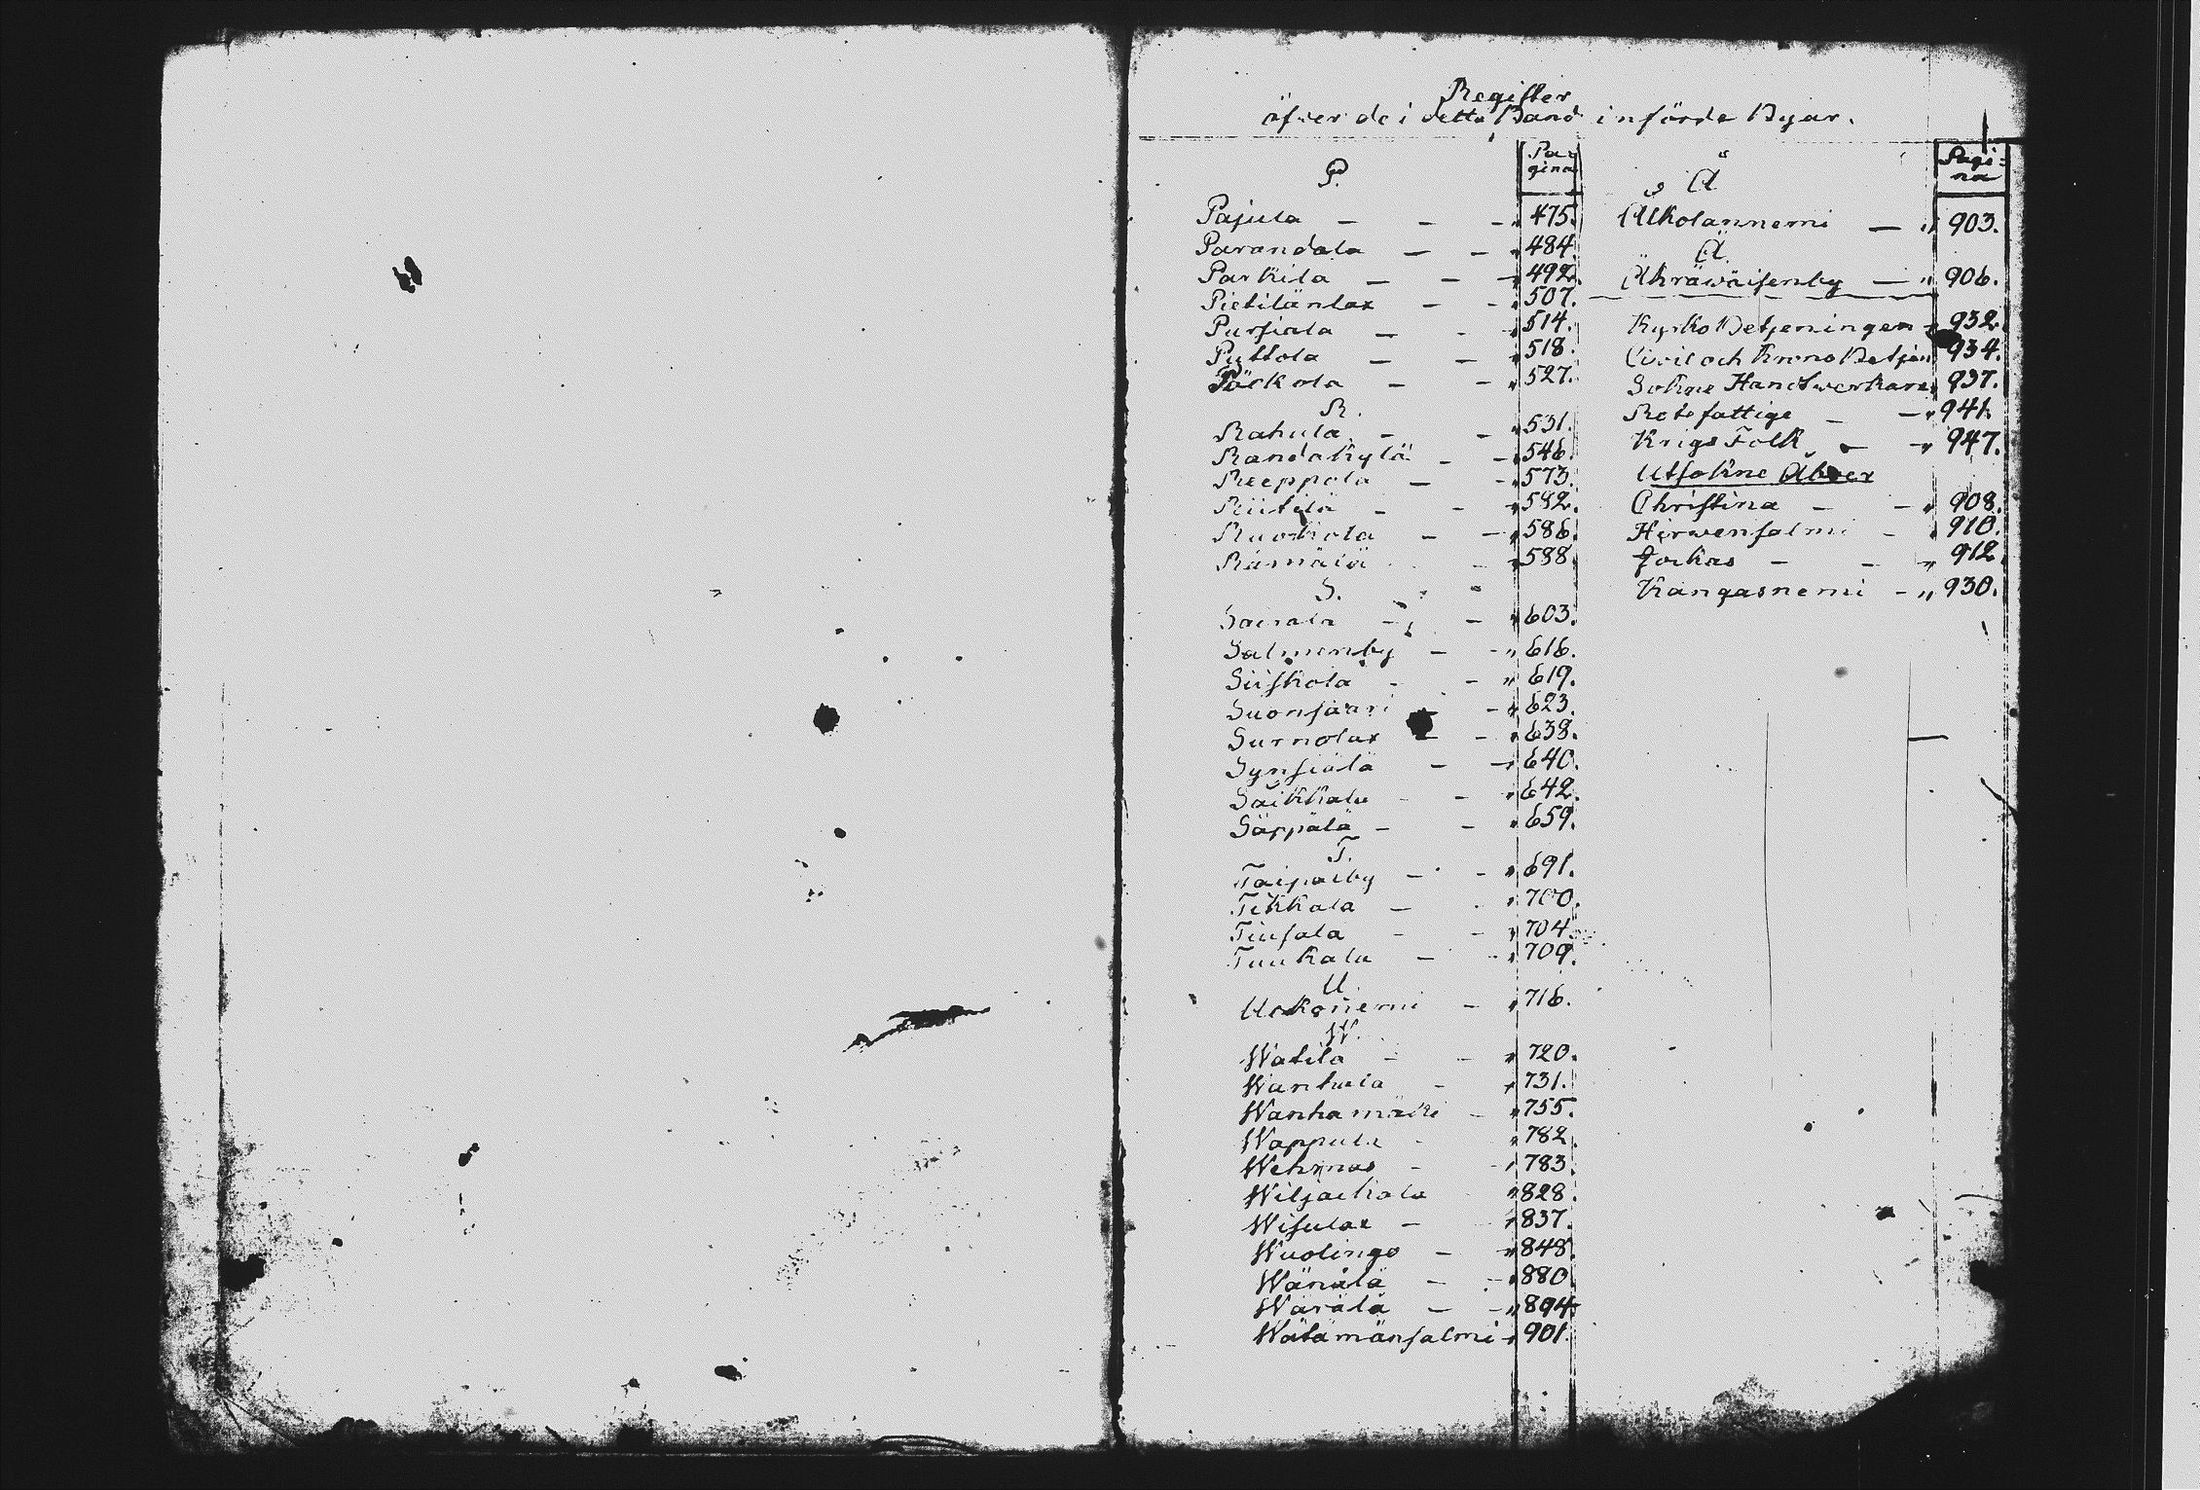 Register
öfver de i detta Band införde Byar.
P.
Pagina
Pajula — — — " 475.
Parandala — — " 484.
Parkila — — — " 492.
Pietilänlax — — " 507.
Pursiala — — " 514.
Puttola — — " 518.
Pöckola — — " 527.
R.
Rahula — — " 531.
Randakylä — — " 546.
Reeppola — — " 573.
Riitilä — — " 582.
Ruokola — — " 586.
Rämälä — " 588
S.
Sairala — — " 603.
Salmenby — — " 616.
Siiskola — — " 619.
Suonsaari — — " 623.
Surnolax — — " 638.
Synsiälä — — " 640.
Säikkälä — — " 642.
Säppälä — — " 659.
T.
Taipalby — — " 691.
Tikkala — " 700.
Tiusala — — " 704.
Tuukala — — " 709.
U.
Uokoniemi — " 716.
W.
Watila — — " 720.
Wanhala — " 731.
Wanhamäki — " 755.
Wappula — " 782.
Wehmas — " 783.
Wiljackala " 828.
Wisulax — " 837.
Wuolingo — " 848.
Wänälä — — " 880.
Wärälä — — " 894.
Wätämänsalmi " 901.
Å
Pagina
Åkolanniemi — " 903.
Ä.
Ähräwäisenby — " 906.
Kyrko Betjeningen " 932.
Civil och Krono Betjen 934.
Sokne Handtverkare " 937.
Rote fattige — — " 941.
Krigs Folk — — " 947.
Utsokne Åboer
Christina — — " 908.
Hirwensalmi — " 910.
Jockas — — " 912
Kangasniemi — " 930.